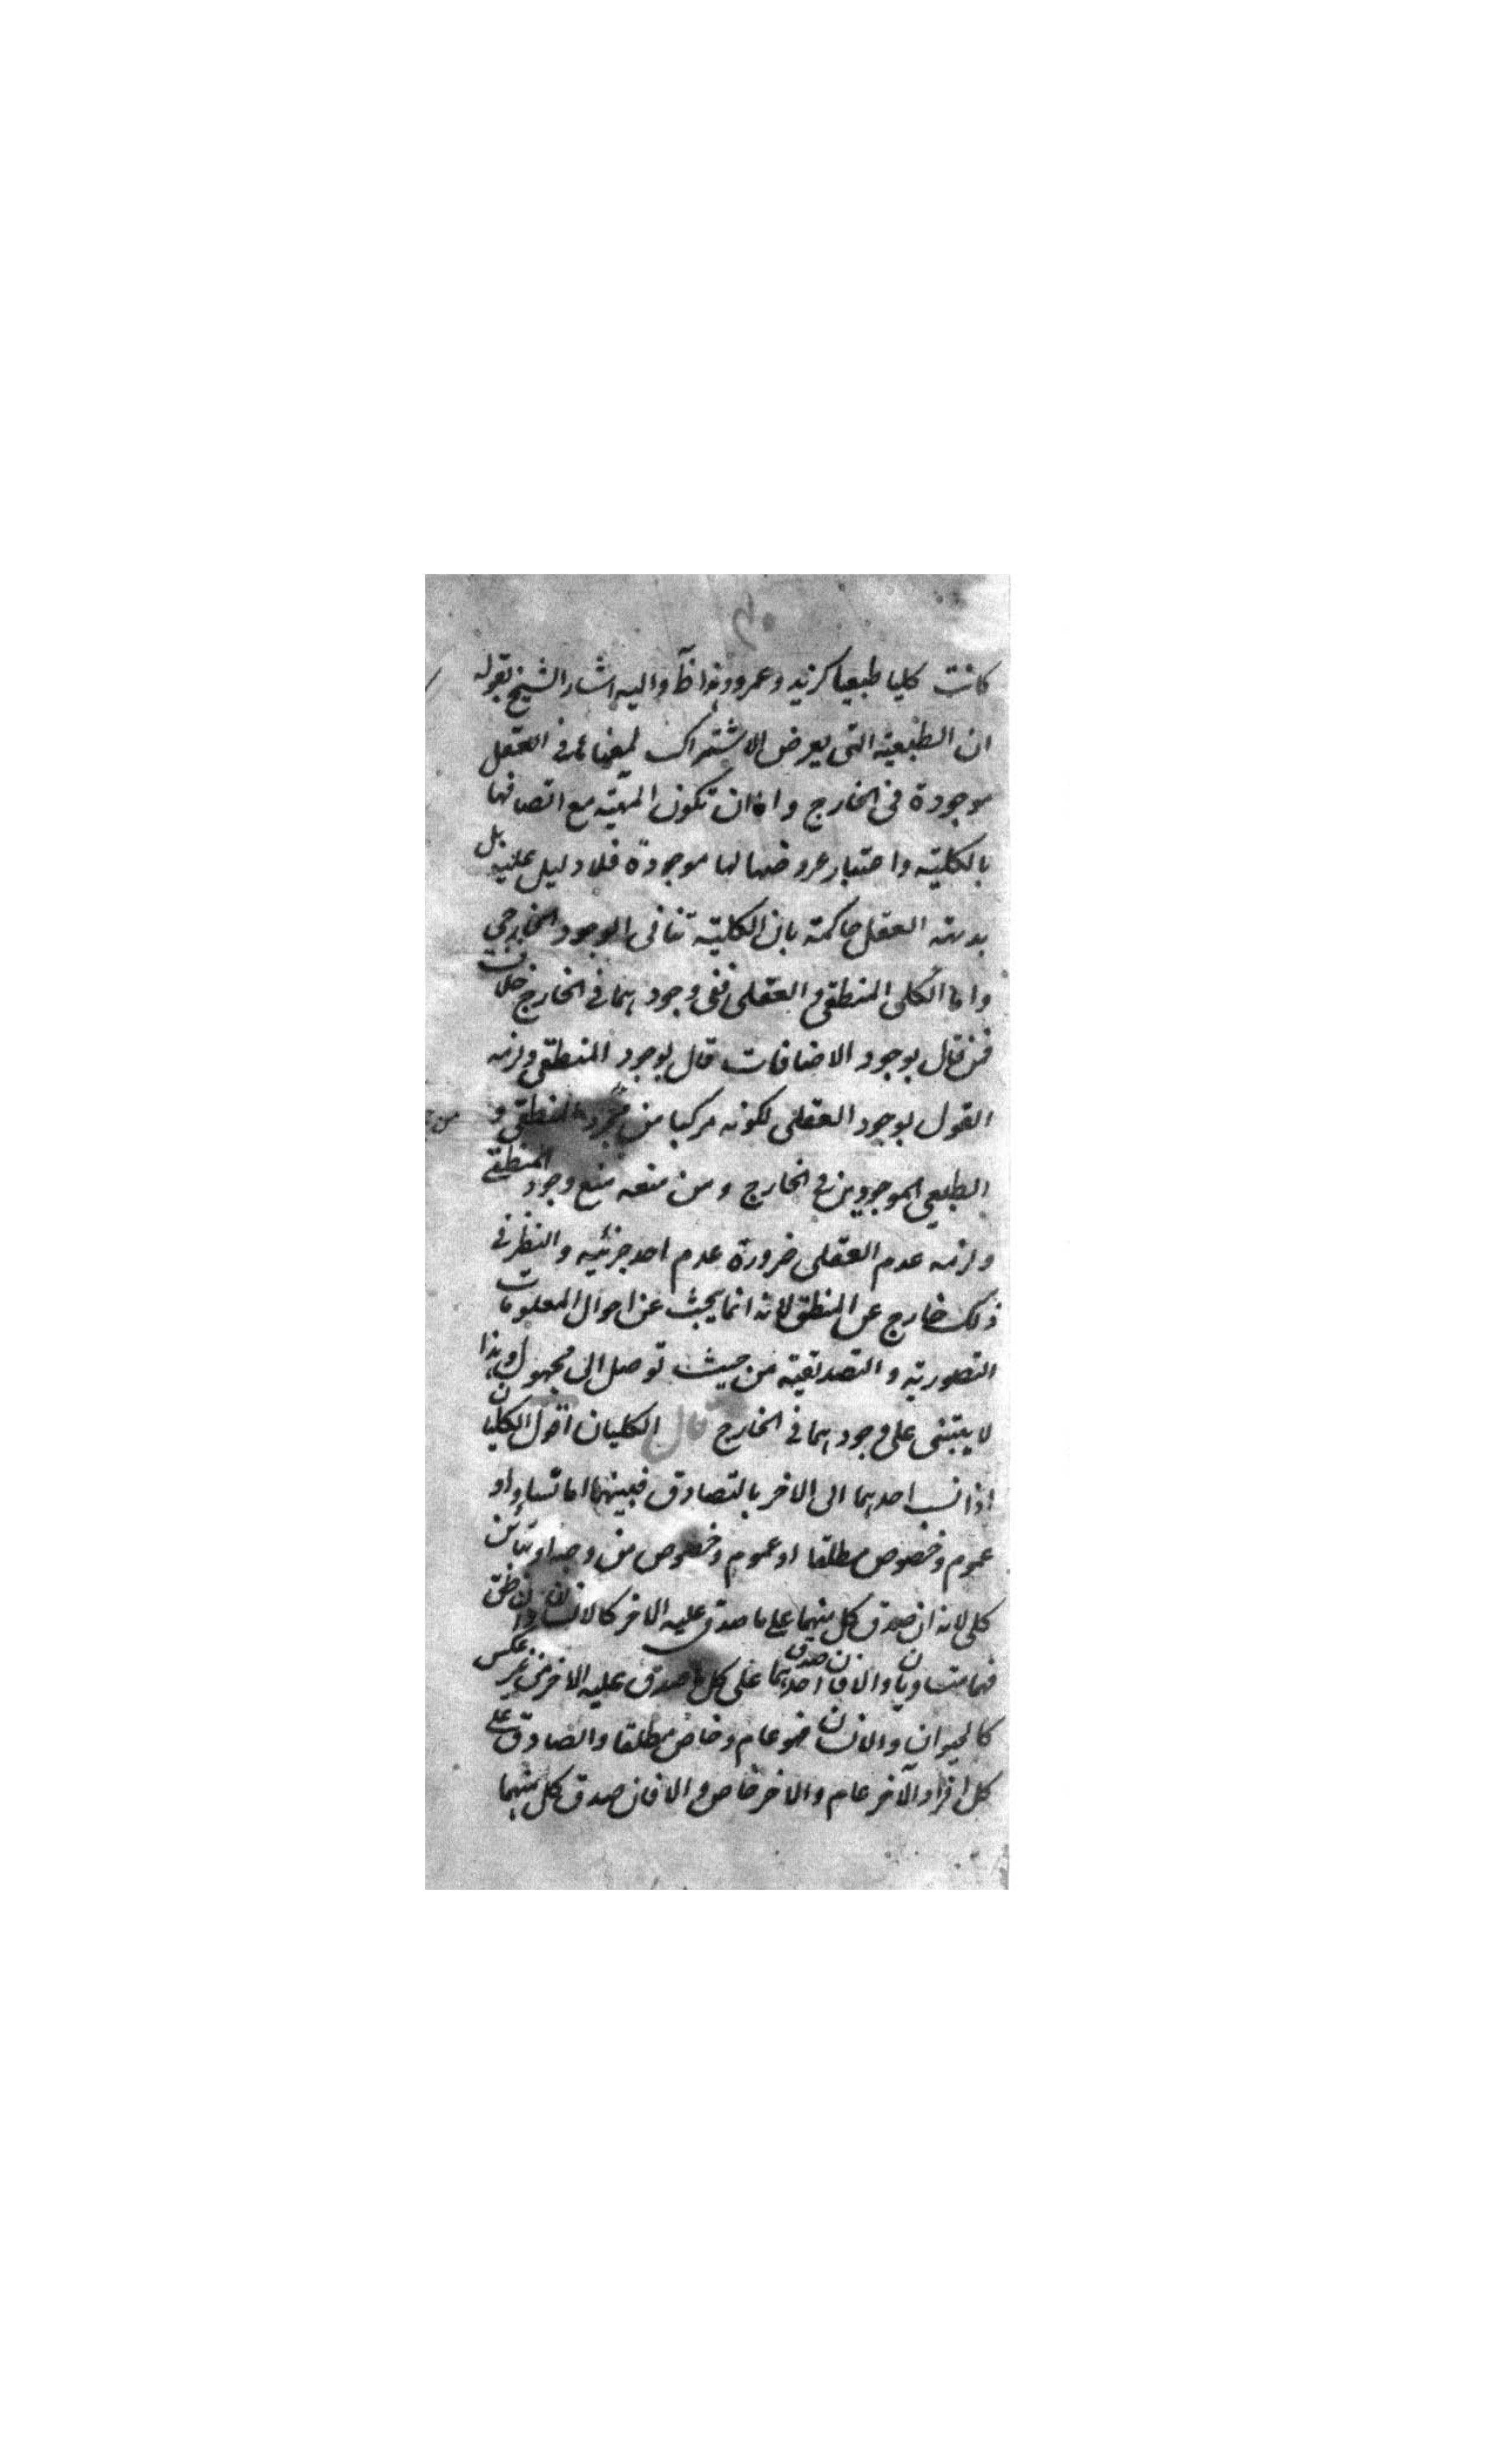 كانت كليا طبيعيا كزيد وعمرو وهذا ظ واليه اشار الشيخ بقوله
ان الطبيعة التي يعرض الاشتراك لمعناها في العقل
موجودة في الخارج واما ان تكون المهية مع اتصافها
بالكلية واعتبار عروضها لها موجودة فلا دليل عليه بل
بديهة العقل حاكمة بان الكلية تنافي الوجود الخارجي
واما الكلي المنطقي والعقلي ففي وجودهما في الخارج خلاف
فمن قال بوجود الاضافات قال بوجود المنطقي ولزمه
القول بوجود العقلي لكونه مركبا من المنطقي و
الطبيعي الموجودين في الخارج ومن منعه منع وجود المنطقي
ولزمه عدم العقلي ضرورة عدم احد جزئيه والنظر في
ذلك خارج عن المنطق لانه انما يبحث عن احوال المعلومات
التصورية والتصديقية من حيث توصل الى مجهول وهذا
لا يبتنى على وجودهما في الخارج قال الكليان اقول الكليان
اذا نسب احدهما الى الاخر بالتصادق فبينهما اما تساو او
عموم وخصوص مطلقا او عموم وخصوص من وجه او تباين
كلي لانه ان صدق كل منهما على ما صدق عليه الاخر كالانسان والناطق
فهما متساويان والا فان صدق احدهما على كل ما صدق عليه الاخر من غير عكس
كالحيوان والانسان فهو عام وخاص مطلقا والصادق على
كل افراد الآخر عام والاخر خاص والا فان صدق كل منهما